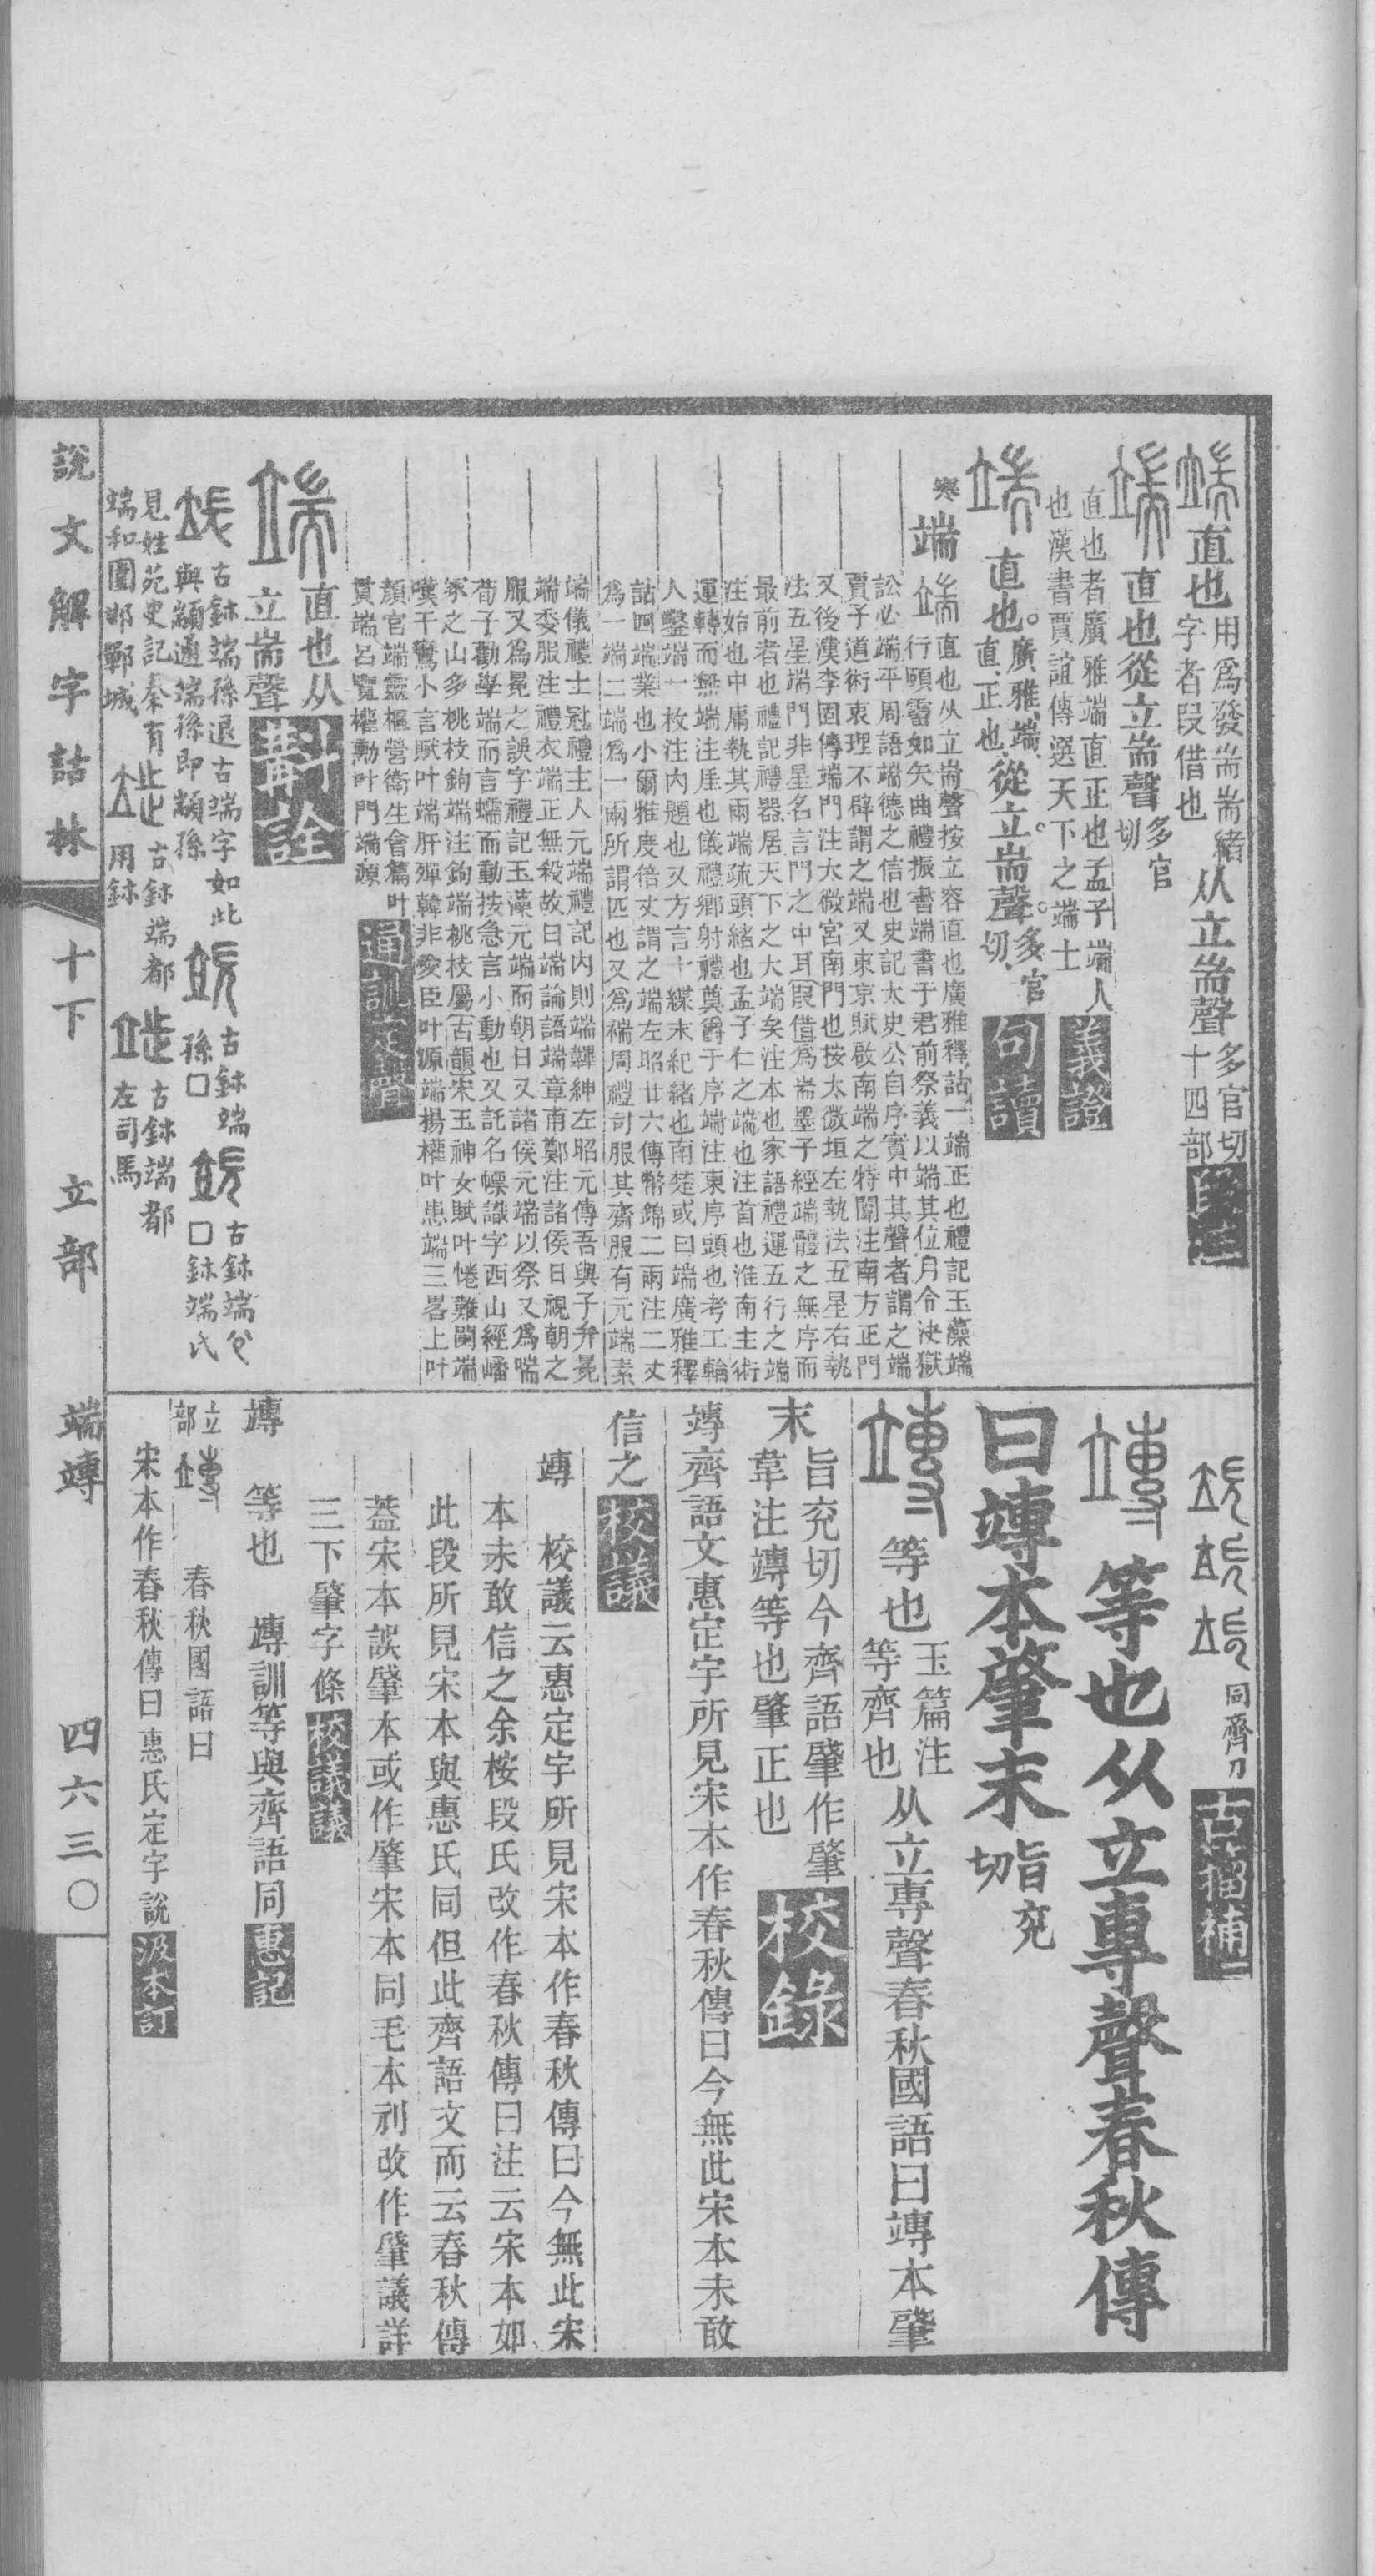 直也用爲發耑耑緒字者叚借也从立耑聲多官切十四部段注
直也從立耑聲多官切
直也者廣雅端直正也孟子端人
也漢書賈誼傳選天下之端士義證
直也。廣雅端直、正也、從立。耑聲。多官切、句讀
寒
端
直也从立耑聲按立容直也廣雅釋詁一端正也禮記玉藻端
行頤霤如矢曲禮振書端書于君前祭義以端其位月令決獄
訟必端平周語端德之信也史記太史公自序實中其聲者謂之端
賈子道術衷理不辟謂之端又東京賦啟南端之特闈注南方正門
又後漢李固傳端門注大微宮南門也按太微垣左執法五星右執
法五星端門非星名言門之中耳叚借爲耑墨子經端體之無序而
最前者也禮記禮器居天下之大端矣注本也家語禮運五行之端
注始也中庸執其兩端疏頭緒也孟子仁之端也注首也淮南主術
運轉而無端注厓也儀禮鄉射禮奠爵于序端注東序頭也考工輪
人鑿端一枚注內題也又方言十緤末紀緒也南楚或曰端廣雅釋
詁四端業也小爾雅度倍丈謂之端左昭廿六傳幣錦二兩注二丈
爲一端二端爲一兩所謂匹也又爲褍周禮司服其齋服有元端素
端儀禮士冠禮主人元端禮記內則端韠紳左昭元傳吾與子弁冕
端委服注禮衣端正無殺故曰端論語端章甫鄭注諸侯日視朝之
服又爲冕之誤字禮記玉藻元端而朝日又諸侯元端以祭又爲喘
荀子勸學端而言蠕而動按急言小動也又託名幖識字西山經嶓
冢之山多桃枝鉤端注鉤端桃枝屬古韻宋玉神女賦叶惓難闌端
嘆干鸞小言賦叶端肝殫韓非愛臣叶源端揚權叶患端三畧上叶
顏官端靈樞營衛生會篇叶
貫端呂覽權勳叶門端源通訓定聲
直也从
立耑聲斠詮
古鉥端孫退古端字如此
與顓通端孫即顓孫
古鉥端
孫□
古鉥端父
□鉥端氏
見姓苑史記秦有
端和圍邯鄲城
古鉥端都
用鉥
古鉥端都
左司馬
同齊刀古籀補
等也从立專聲春秋傳
曰竱本肇末旨兗切
等也玉篇注等齊也从立專聲春秋國語曰竱本肇
末旨兗切今齊語肇作肇
韋注竱等也肇正也校錄
竱齊語文惠定宇所見宋本作春秋傳曰今無此宋本未敢
信之校議
竱　校議云惠定宇所見宋本作春秋傳曰今無此宋
本未敢信之余桉段氏改作春秋傳曰注云宋本如
此段所見宋本與惠氏同但此齊語文而云春秋傳
蓋宋本誤肇本或作肇宋本同毛本刓改作肇議詳
三下肇字條校議議
竱　等也　竱訓等與齊語同惠記
立部　春秋國語曰
宋本作春秋傳曰惠氏定宇說汲本訂
說文解字詁林　十下　立部　端竱　四六三〇